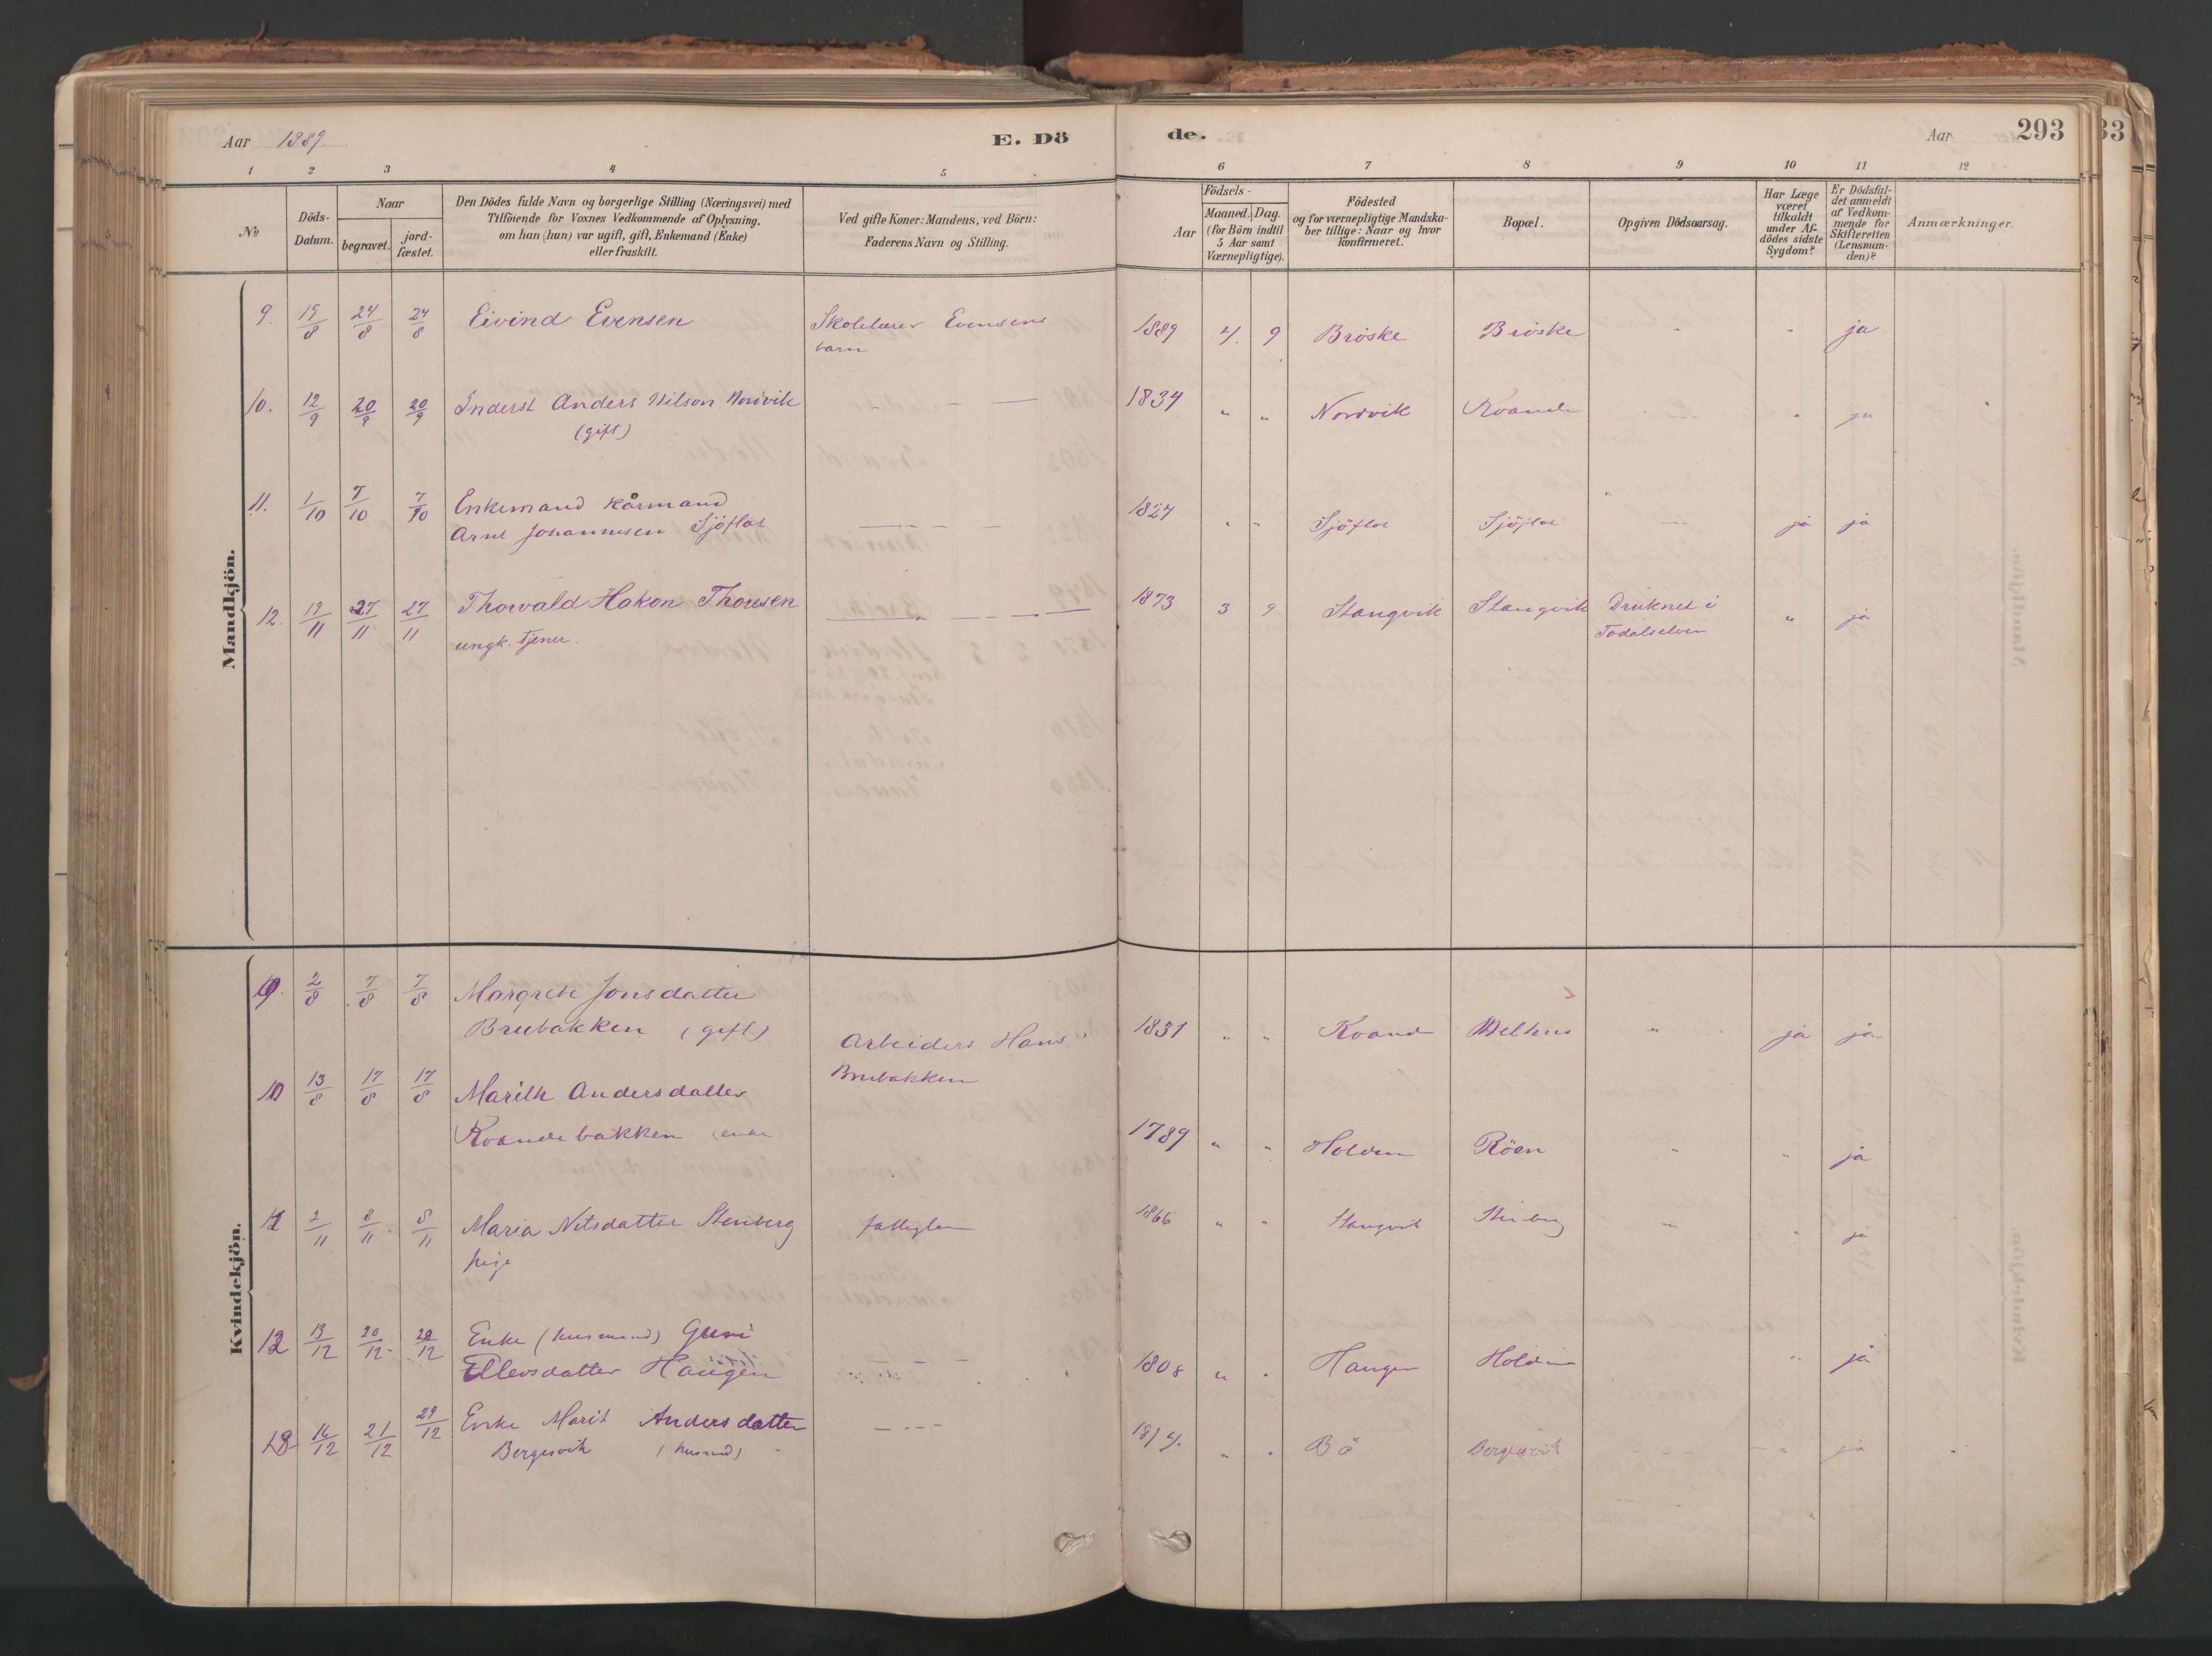 Aar 1889
E. Dö
de.
Aar
293
33
1 2 3 4 5 6 7 8 9 10 11 12
No
Döds-
Datum.
Naar
begravet.
jord-
fæstet.
Den Dödes fulde Navn og borgerlige Stilling (Næringsvei) med
Tilföiende for Voxnes Vedkommende af Oplysning,
om han (hun) var ugift, gift, Enkemand (Enke)
eller fraskilt.
Ved gifte Koner: Mandens, ved Börn:
Faderens Navn og Stilling.
Aar
Födsels-
Maaned. Dag.
(for Börn indtil
5 Aar samt
Værnepligtige).
Födested
og for værnepligtige Mandska-
ber tillige: Naar og hvor
Konfirmeret.
Bopæl.
Opgiven Dödsaarsag.
Har Læge
været
tilkaldt
under Af-
dödes sidste
Sygdom?
Er Dödsfal-
det anmeldt
af Vedkom-
mende for
Skifteretten
(Lensman-
den)?
Anmærkninger.
Mandkjön.
9. 19/8 24/8 24/8 Eivind Evensen Skolelærer Evensens 1889 4. 9 Bröske Bröske " " ja
barn
10. 12/9 20/9 20/9 Inderst Anders Nilson Nordvik — — 1834 " " Nordvik Kvande — " ja
(gift)
11. 1/10 7/10 7/10 Enkemand kårmand
Arnt Johannesen Sjöflot — — 1824 " " Sjöflot Sjöflot — ja ja
12. 19/11 27/11 27/11 Thorvald Hakon Thoresen — — 1873 3 9 Stangvik Stangvik Druknet i " ja
ungk. tjener. Todalselven
Kvindekjön.
9. 2/8 7/8 7/8 Margrete Jonsdatter
Brubakken (gift) Arbeiders Hans 1831 " " Kvande Melhus " ja ja
Brubakken
10 13/8 17/8 17/8 Marith Andersdatter
Kvandebakken (enke) 1789 " " Holden Röen " " ja
11 2/11 8/11 8/11 Maria Nilsdatter Stenberg fattiglem 1866 " " Stangvik Stenberg " " ja
pige
12 13/12 20/12 20/12 Enke (husmand) Guri
Ellevsdatter Haugen — — 1808 " " Haugen Holden " ja
13 16/12 21/12 29/12 Enke Marit Andersdatter — — 1814. " " Bö Bergesvik — " ja
Bergesvik (husmd)